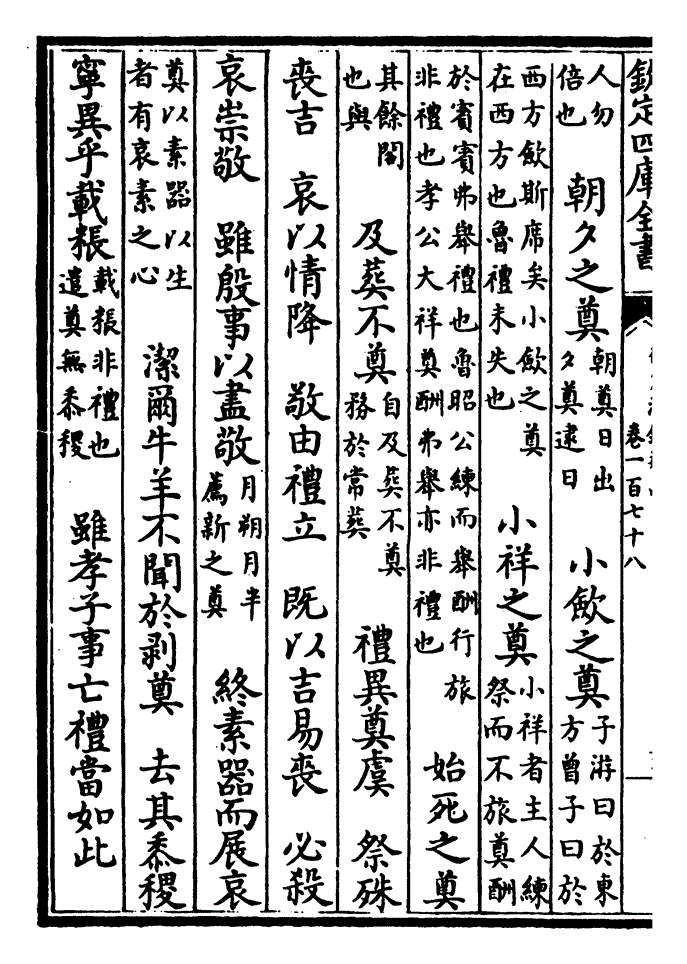 欽定四庫全書
卷一百七十八
人勿倍也 朝夕之奠 朝奠日出夕奠逮日 小歛之奠 子游曰於東方曾子曰於
西方歛斯席矣小歛之奠在西方也魯禮末失也 小祥之奠 小祥者主人練祭而不旅奠酬
於賓賓弗舉禮也魯昭公練而舉酬行旅非禮也孝公大祥奠酬弗舉亦非禮也 始死之奠
其餘閣也與 及葬不奠 自及葬不奠務於常葬 禮異奠虞 祭殊
喪吉 哀以情降 敬由禮立 既以吉易喪 必殺
哀崇敬 雖殷事以盡敬 月朔月半薦新之奠 終素器而展哀
奠以素器以生者有哀素之心 潔爾牛羊不聞於剥奠 去其黍稷
寧異乎載粻 載粻非禮也遣奠無黍稷 雖孝子事亡禮當如此